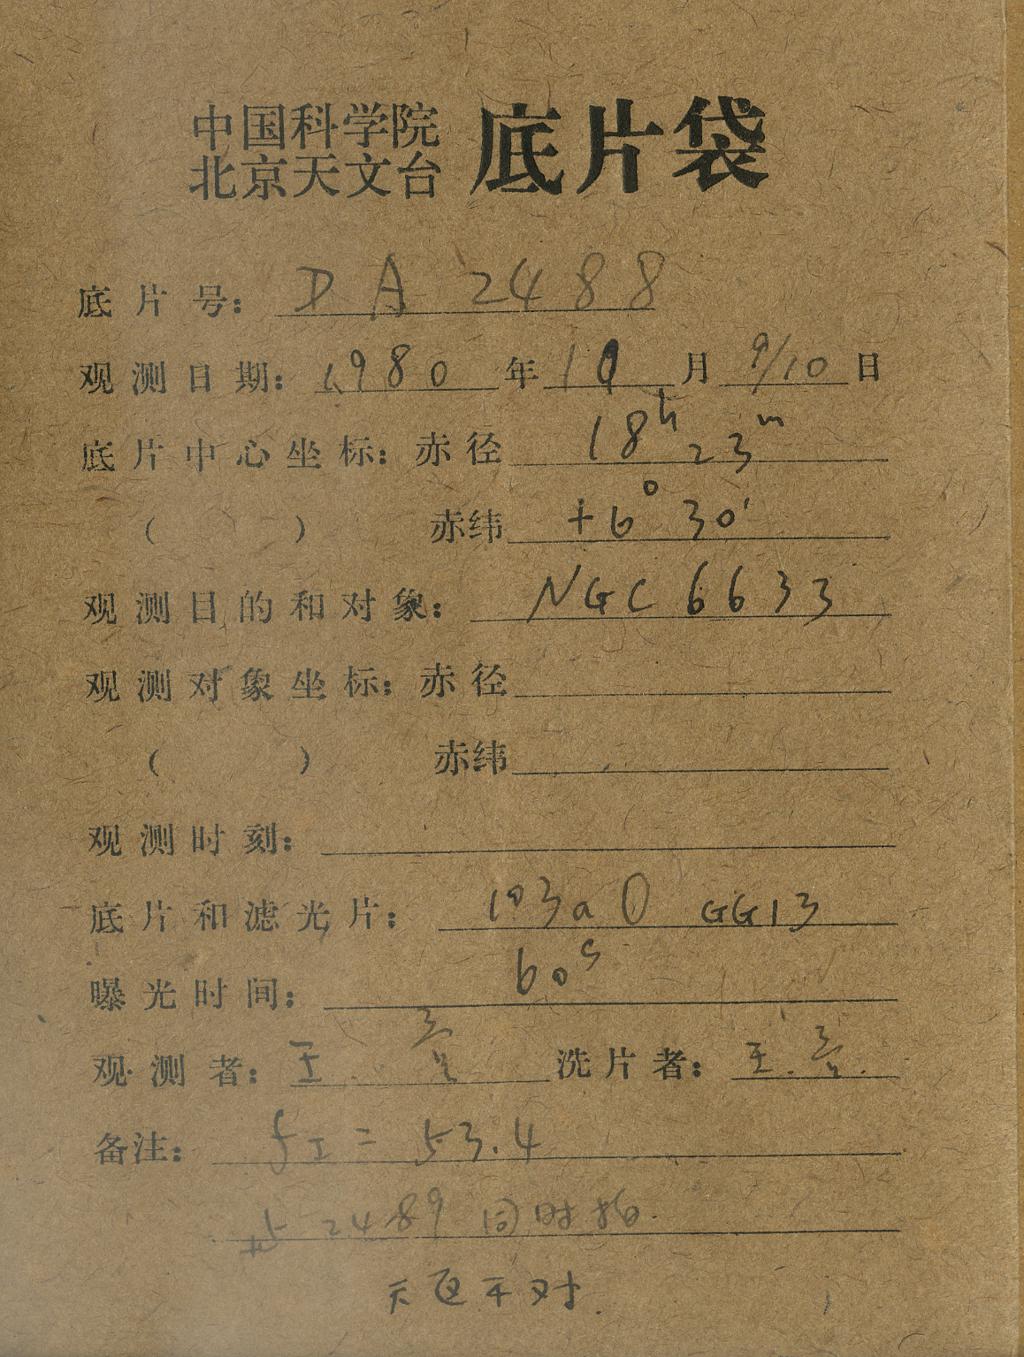 中国科学院
北京天文台 底片袋
底片号： DA 2488
观测日期： 1980 年 10 月 9/10 日
底片中心坐标：赤径 18h 23m
（ ） 赤纬 +6° 30′
观测目的和对象： NGC 6633
观测对象坐标：赤径
（ ） 赤纬
观测时刻：
底片和滤光片： 103aO GG13
曝光时间： 60s
观测者： 王. 洗片者： 王.
备注： fI = 53.4
2489 同时拍.
天区不对.